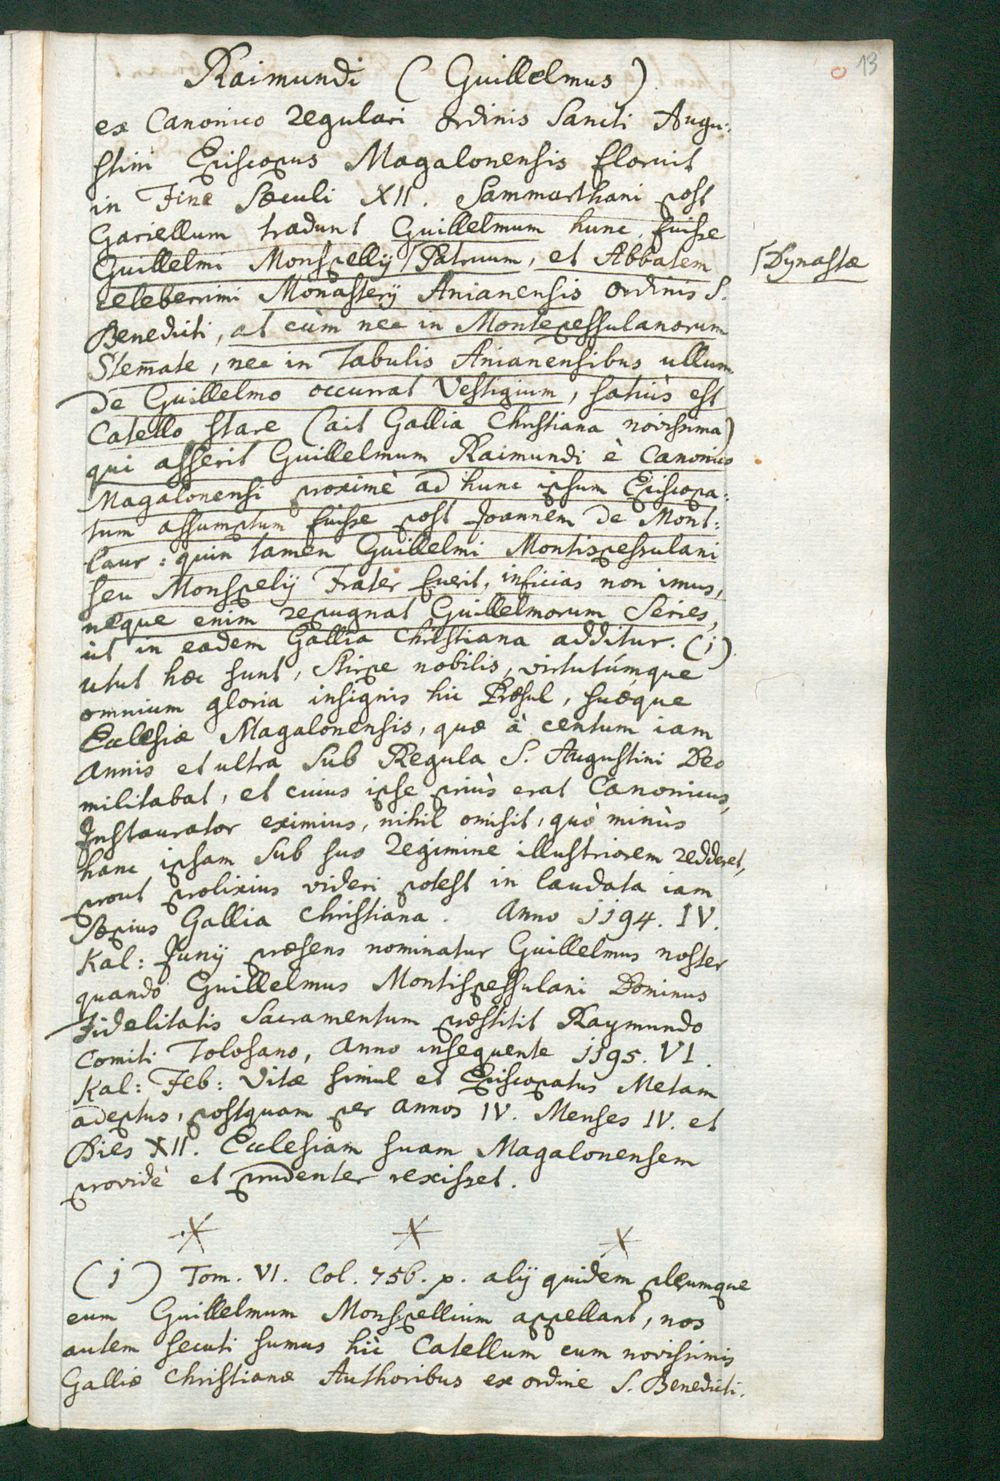 13
Raimundi (Guillelmus)
ex Canonico Regulari Ordinis Sancti Augu:
stini Episcopus Magalonensis floruit
in Fine Sæculi XII. Sammarthani post
Gariellum tradunt Guillelmum hunc fuisse
Guillelmi Monspellij Patruum, et Abbatem
Dynastæ
celeberrimi Monasterij Anianensis Ordinis S.
Benedicti, at cùm nec in Montepessulanorum
Stem̄ate, nec in Tabulis Anianensibus ullum
de Guillelmo occurrat Vestigium, satiùs est
Catello stare (ait Gallia Christiana novissima)
qui asserit Guillelmum Raimundi è Canonico
Magalonensi proximè ad hunc ipsum Episcopa:
tum assumptum fuisse post Joannem de Mont:
laur: quin tamen Guillelmi Montispessulani
seu Monspelij Frater fuerit, inficias non imus,
neque enim repugnat Guillelmorum Series,
ut in eadem Gallia Christiana additur. (1)
Utut hæc sunt, Stirpe nobilis, virtutúmque
omnium gloria insignis hic Præsul, suæque
Ecclesiæ Magalonensis, quæ à centum iam
Annis et ultra Sub Regula S. Augustini Deo
militabat, et cuius ipse priùs erat Canonicus,
Instaurator eximius, nihil omisit, quò minùs
hanc ipsam Sub suo Regimine illustriorem redderet,
prout prolixius videri potest in laudata iam
Sæpius Gallia Christiana. Anno 1194. IV.
Kal: Junij præsens nominatur Guillelmus noster
quando Guillelmus Montispessulani Dominus
Fidelitatis Sacramentum præstitit Raymundo
Comiti Tolosano, Anno insequente 1195. VI.
Kal: Feb: Vitæ simul et Episcopatus Metam
adeptus, postquam per Annos IV. Menses IV. et
Dies XII. Ecclesiam suam Magalonensem
providè et prudenter rexisset.
(1) Tom. VI. Col. 756. p. alij quidem plerumque
eum Guillelmum Monspellium appellant, nos
autem secuti sumus hìc Catellum cum novissimis
Galliæ Christianæ Authoribus ex ordine S. Benedicti.